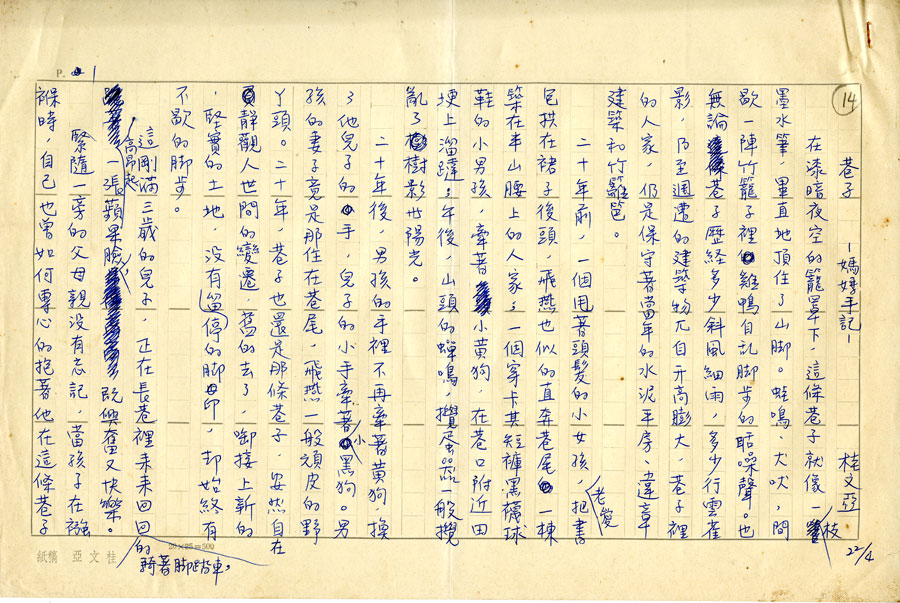 14
巷子　—媽媽手記—　桂文亞
22/4
在漆暗夜空的籠罩下，這條巷子就像一枝
墨水筆，畢直地頂住了山腳。蛙鳴、犬吠，間
歇一陣竹籠子裡雞鴨自亂脚步的聒噪聲。也
無論巷子歷經多少斜風細雨，多少行雲雀
影，乃至週遭的建築物兀自升高膨大，巷子裡
的人家，仍是保守著當年的水泥平房、違章
建築和竹籬笆。
二十年前，一個甩著頭髮的小女孩，老愛把書
包拱在裙子後頭，飛燕也似的直奔巷尾一棟
築在半山腰上的人家；一個穿卡其短褲黑襪球
鞋的小男孩，牽著小黃狗，在巷口附近田
埂上溜躂；午後，山頭的蟬鳴，攪蛋器一般攪
亂了樹影世陽光。
二十年後，男孩的手裡不再牽著黃狗，換
了他兒子的手，兒子的小手牽著小黑狗。男
孩的妻子竟是那住在巷尾，飛燕一般頑皮的野
丫頭。二十年，巷子也還是那條巷子，安然自在
靜觀人世間的變遷，舊的去了，啣接上新的
，堅實的土地，沒有停留的脚印，却始終有
不歇的脚步。
這剛滿三歲的兒子，正在長巷裡來來回回的騎著脚踏車，
高昂起一張蘋果臉，既興奮又快樂。
緊隨一旁的父母親沒有忘記，當孩子在襁
褓時，自己也曾如何專心的抱著他在這條巷子
P. 1
20×25=500
桂文亞稿紙